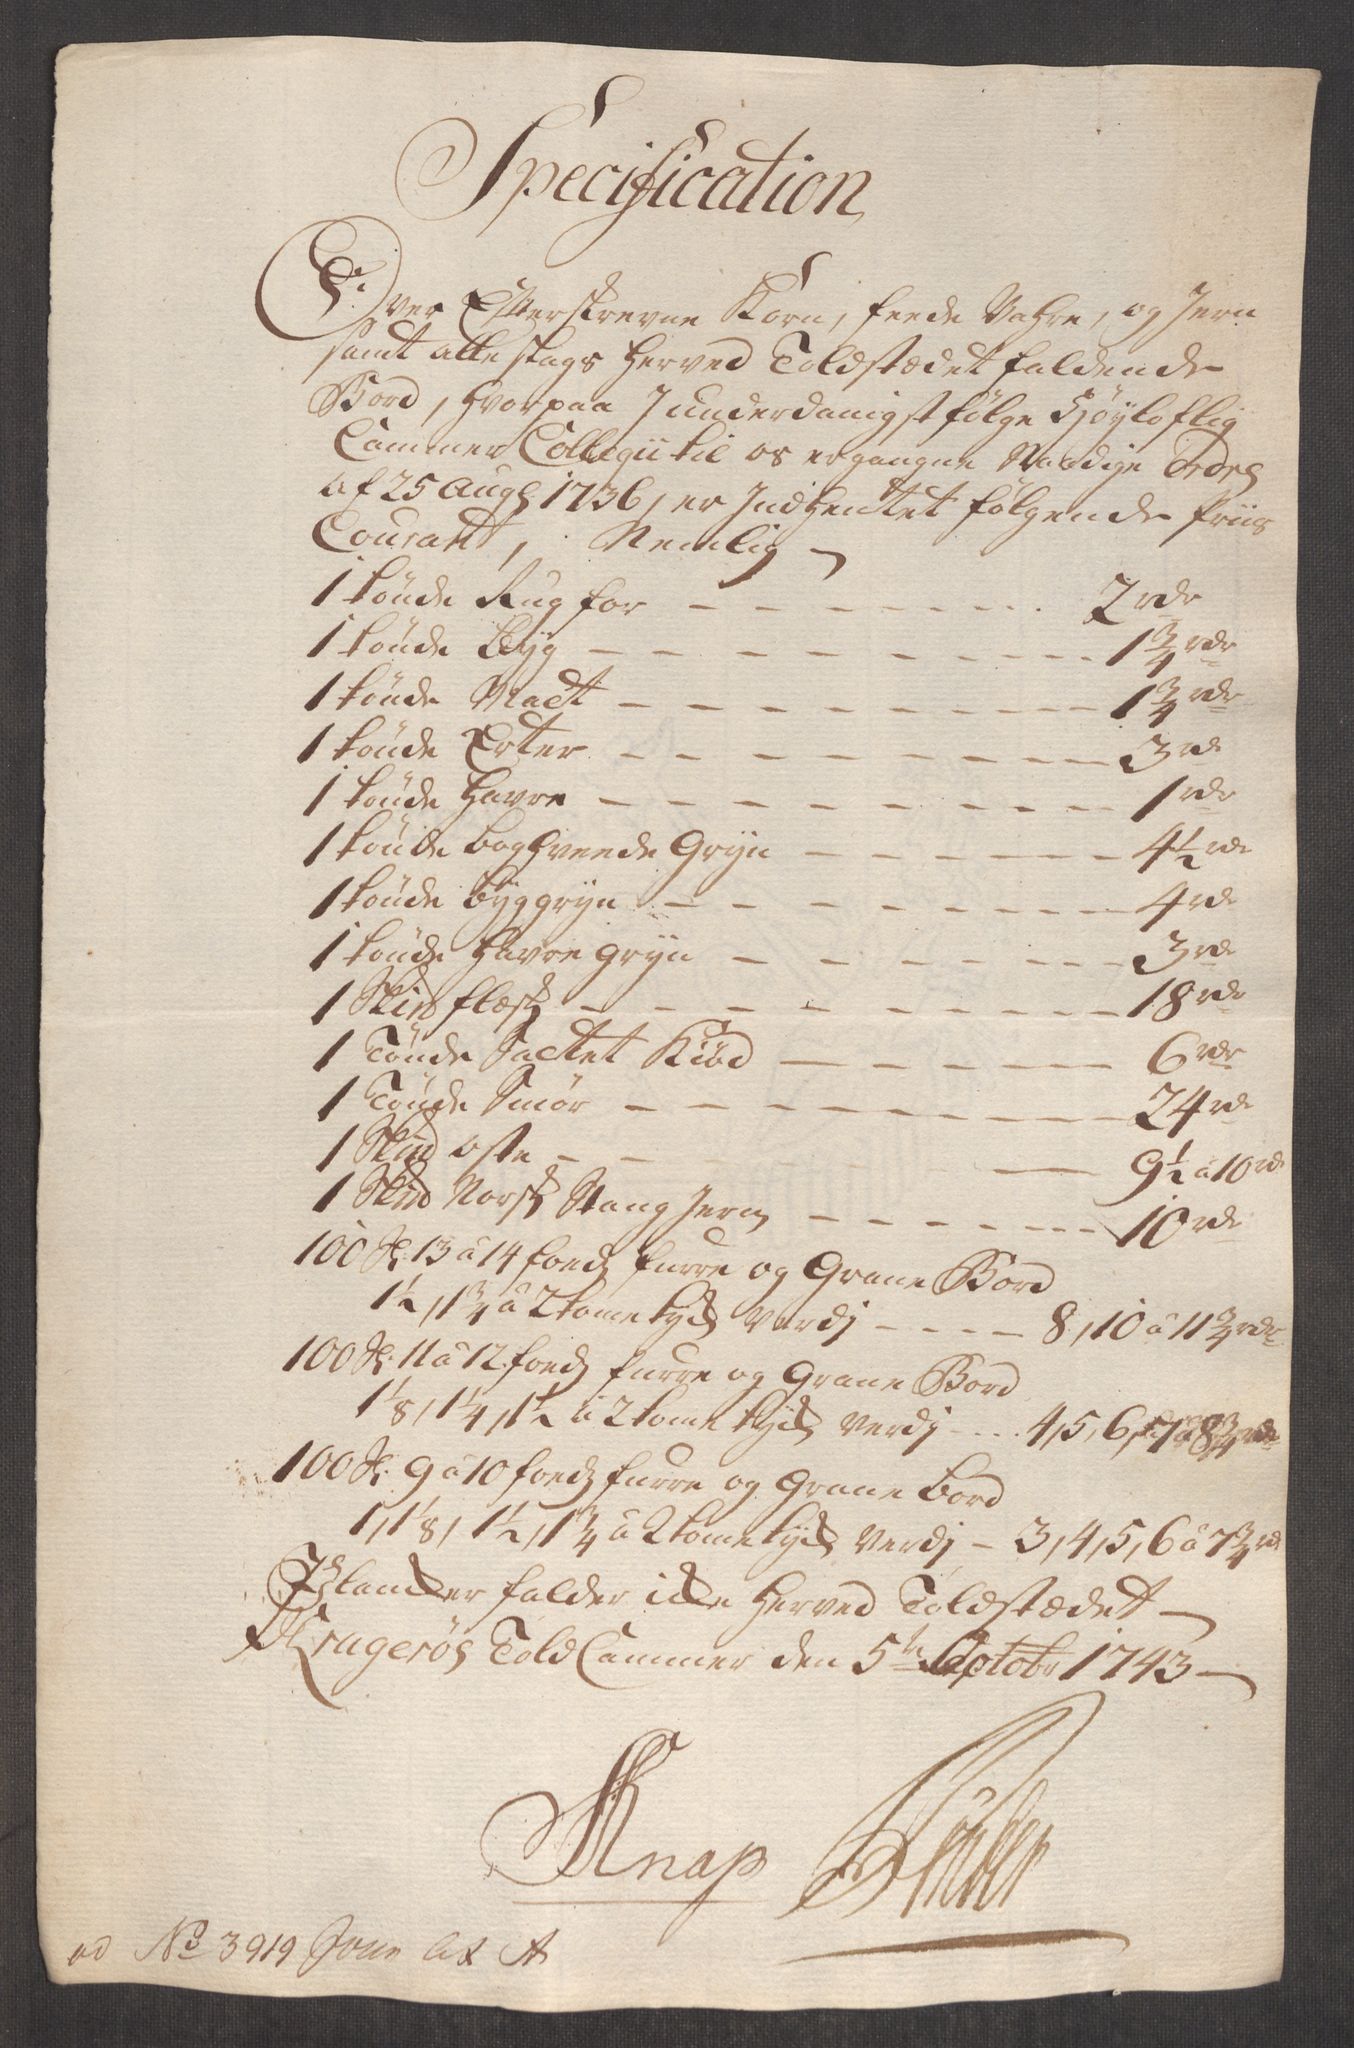 Specification
Over Efterskrevne Korn, feede Vahre, og Jern
samt alle slags herved Toldstædet faldende
Bord, hvorpaa I underdanigst følge Høyloflig
Cammer Collegii til os ergangne Naadige Ordre
af 25 Aug 1736, er Indhentet følgende Priis
Courant, Nemlig
1 tønde Rug for - - - 2 rdr
1 tønde Byg - - - 1 3/4 rdr
1 tønde Malt - - - 1 3/4 rdr
1 tønde Erter - - - 3 rdr
1 tønde Havre - - - 1 rdr
1 tønde boghveede Gryn - - - 4 1/2 rdr
1 tønde byggryn - - - 4 rdr
1 tønde Havre gryn - - - 3 rdr
1 Skpd flesk - - - 18 rdr
1 Tønde Saltet Kiød - - - 6 rdr
1 Tønde Smør - - - 24 rdr
1 Skpd oste - - - 9 1/2 à 10 rdr
1 Skpd Norsk Stang Jern - - - 10 rdr
100 st. 13 à 14 foeds furre og Grane Bord
1 1/2, 1 3/4 à 2 tome tyk Verdj - - - 8, 10 à 11 3/4 rdr
100 st. 11 à 12 foeds furre og Grane Bord
1 1/8, 1 1/4, 1 1/2 à 2 tome tyk Verdj - - - 4, 5, 6, 7 à 8 3/4 rdr
100 st. 9 à 10 foeds furre og Grane bord
1, 1 1/8, 1 1/2, 1 3/4 à 2 tome tyk Verdj - 3, 4, 5, 6 à 7 3/4 rdr
falder icke herved Toldstædet
Kragerøe Told Cammer den 5te Octobr 1743
Knap
ad No 3919 Lit A